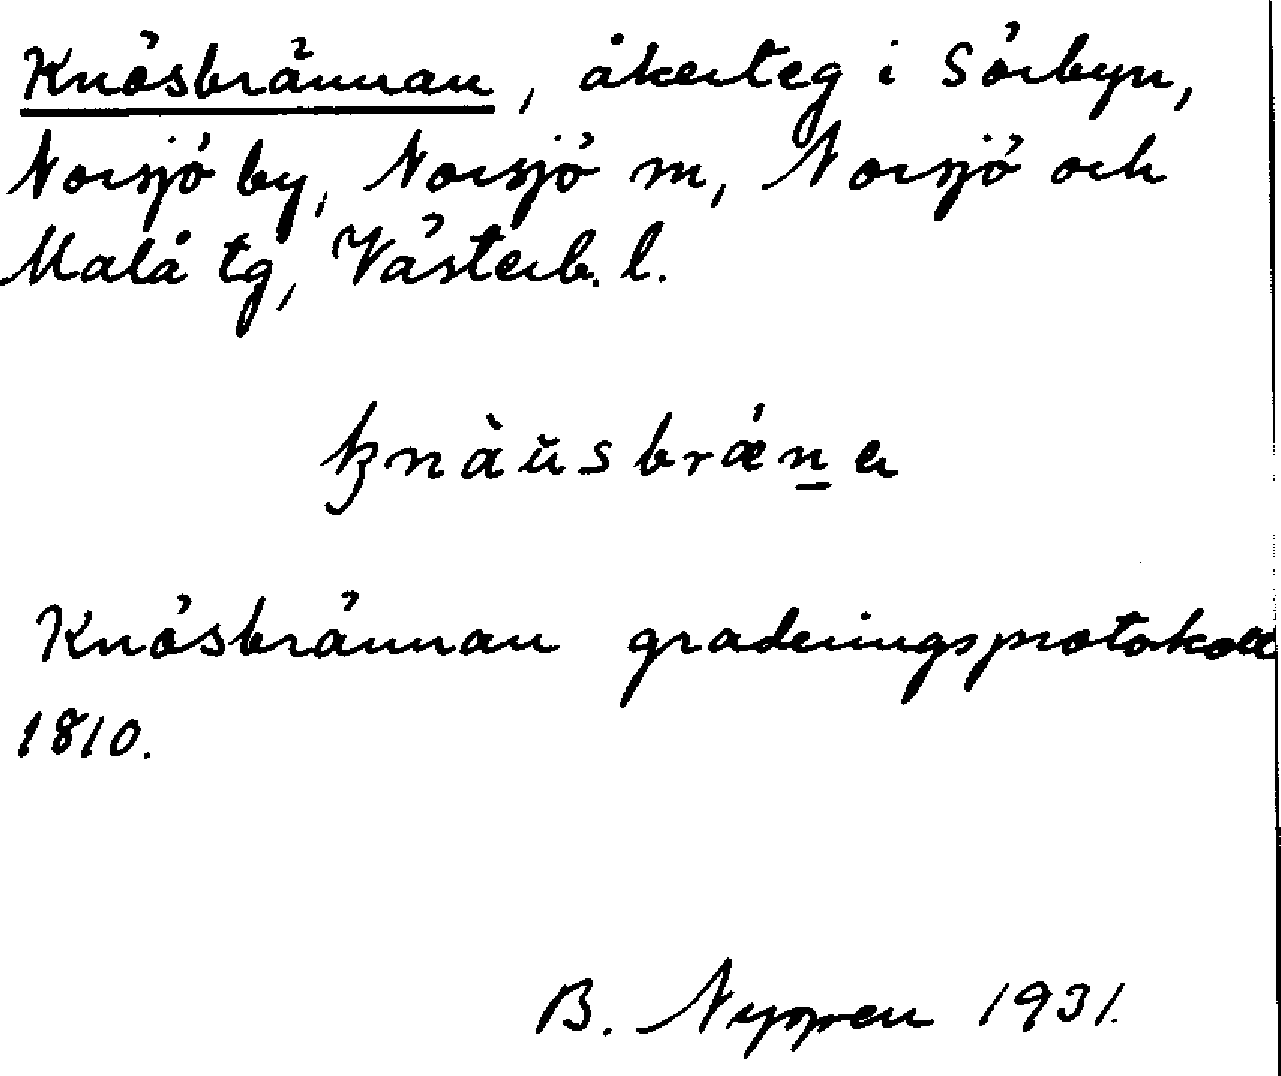 Knösbrännan, åkerteg i Sörbyn,
Norsjö by, Norsjö m, Norsjö och
Malå tg, Västerb. l.
Knösbrännan graderingsprotokoll
1810.
B. Nyppen 1931.